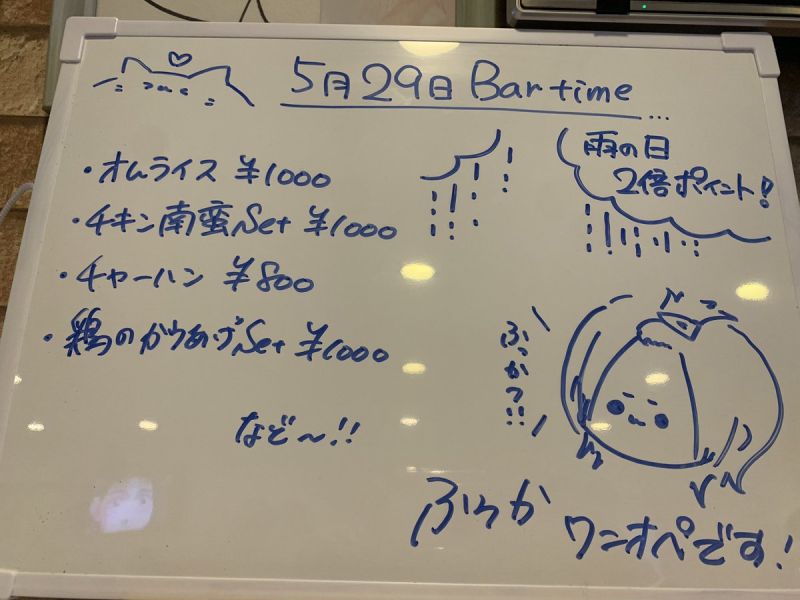 5月29日 Bar time
雨の日
2倍ポイント!
・オムライス ¥1000
・チキン南蛮Set ¥1000
・チャーハン ¥800
・鶏のからあげSet ¥1000
など〜!!
ふっかつ!!
ふうか
ワンオペです!